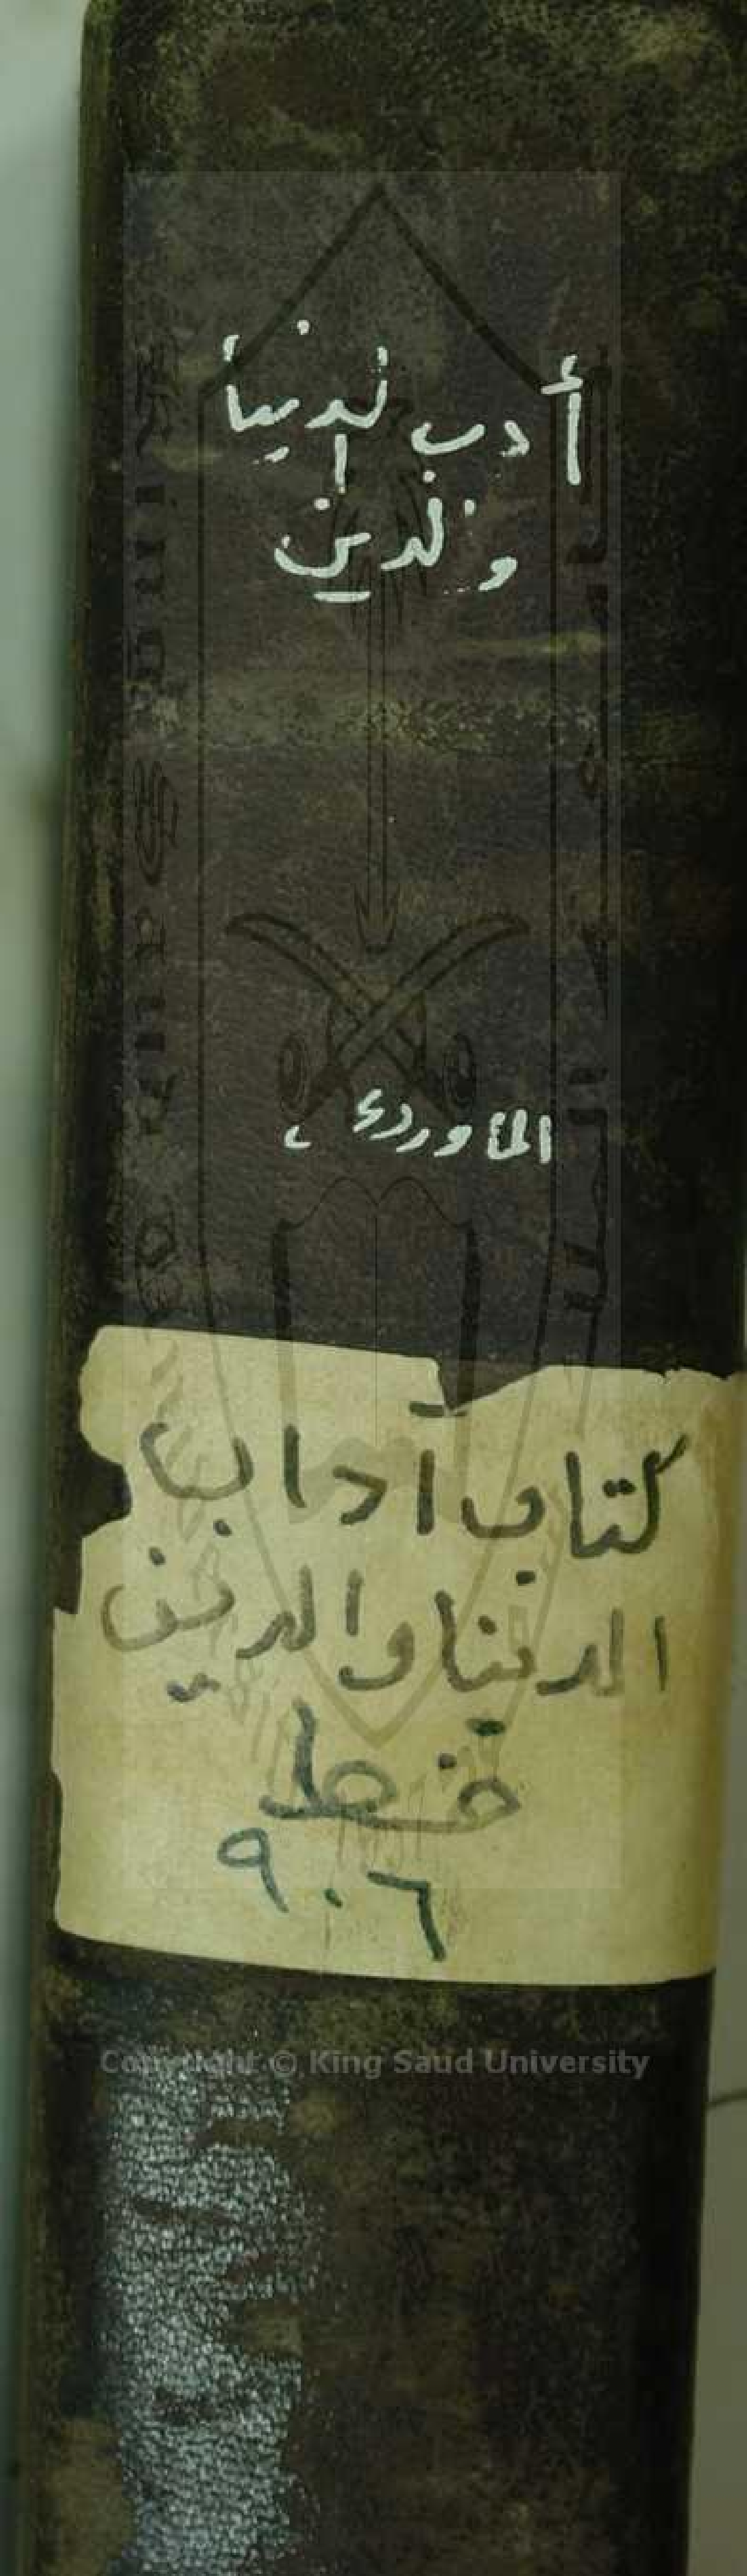 أدب الدنيا
والدين
الماوردي
كتاب آداب
الدنيا والدين
خط
٩٠٦
Copyright © King Saud University